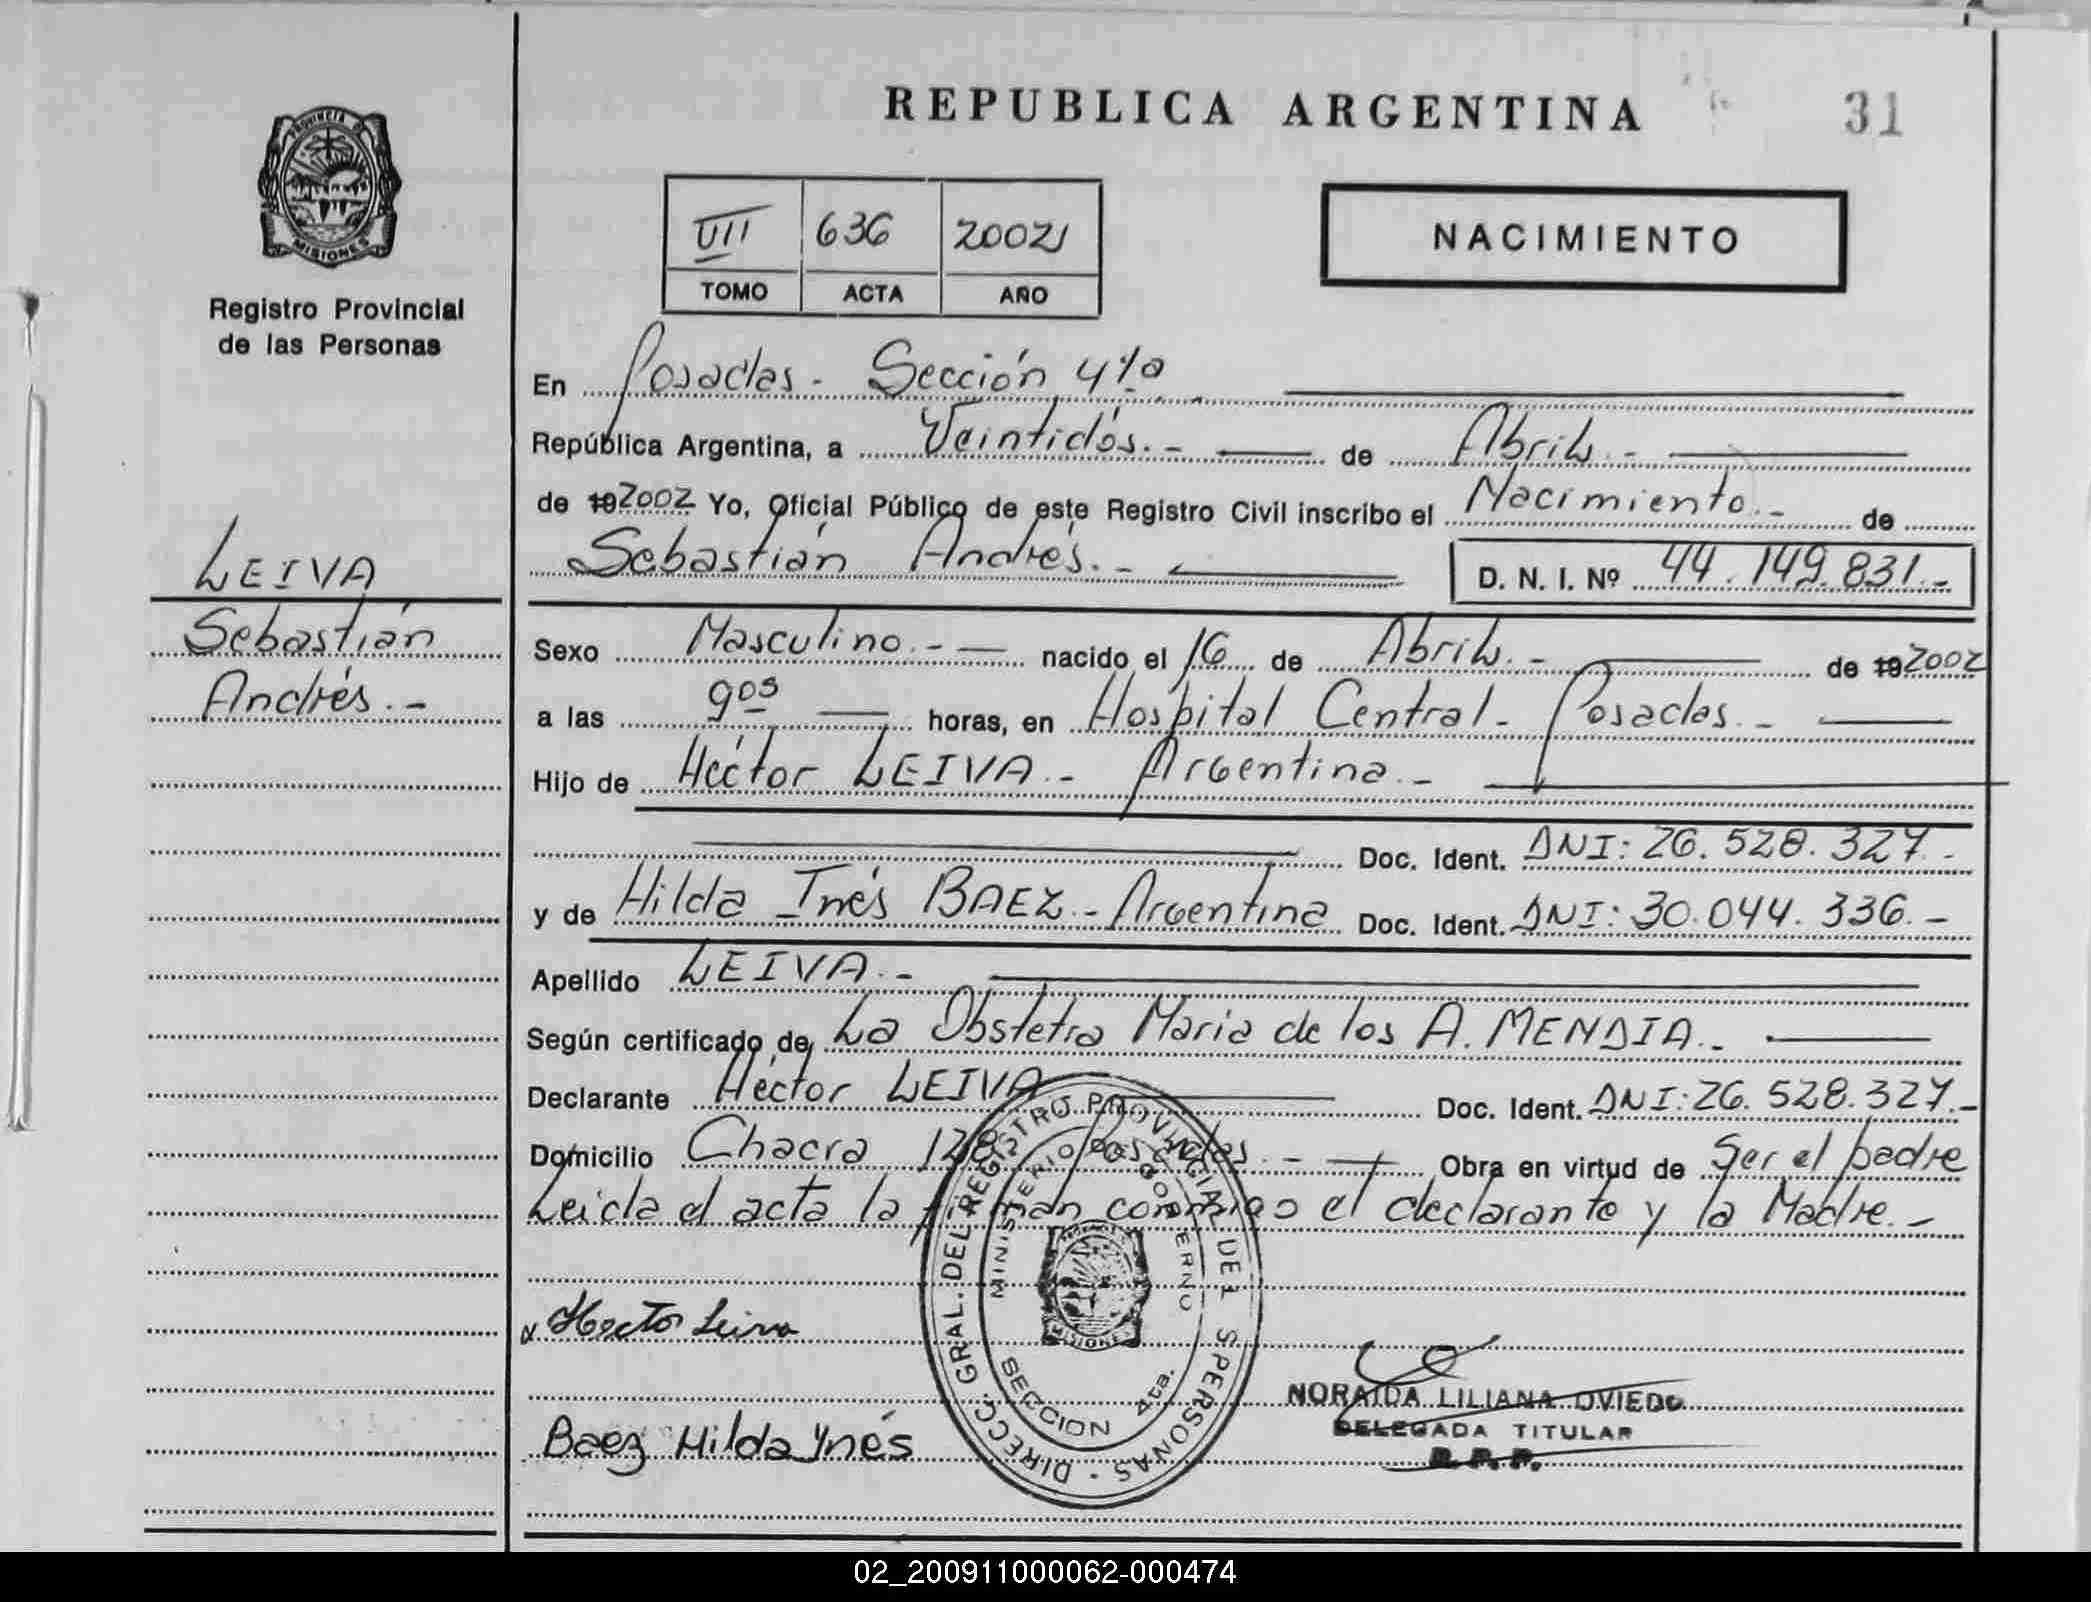 REPUBLICA ARGENTINA
31
PROVINCIA DE
MISIONES
Registro Provincial
de las Personas
VII 636 2002
TOMO ACTA AÑO
NACIMIENTO
En Posadas.- Sección 4ta
República Argentina, a Veintidós.- de Abril.-
de 192002 Yo, Oficial Público de este Registro Civil inscribo el Nacimiento.- de
Sebastián Andrés.- D. N. I. Nº 44.149.831.-
LEIVA
Sebastián
Andrés.-
Sexo Masculino.- nacido el 16 de Abril.- de 192002
a las 9:05 horas, en Hospital Central- Posadas.-
Hijo de Héctor LEIVA.- Argentina.-
Doc. Ident. DNI: 26.528.327.-
y de Hilda Inés BAEZ.- Argentina Doc. Ident. DNI: 30.044.336.-
Apellido LEIVA.-
Según certificado de La Obstetra Maria de los A. MENDIA.-
Declarante Héctor LEIVA Doc. Ident. DNI: 26.528.327.-
Domicilio Chacra 128 Posadas.- Obra en virtud de Ser el padre
Leida el acta la firman conmigo el declarante y la Madre.-
DIRECC. GRAL. DEL REGISTRO PROVINCIAL DE L S PERSONAS
MINISTERIO DE GOBIERNO
MISIONES
SECCION 4ta.
Hector Leiva
NORAIDA LILIANA OVIEDO
DELEGADA TITULAR
R. P. P.
Baez Hilda Ynés
02_200911000062-000474